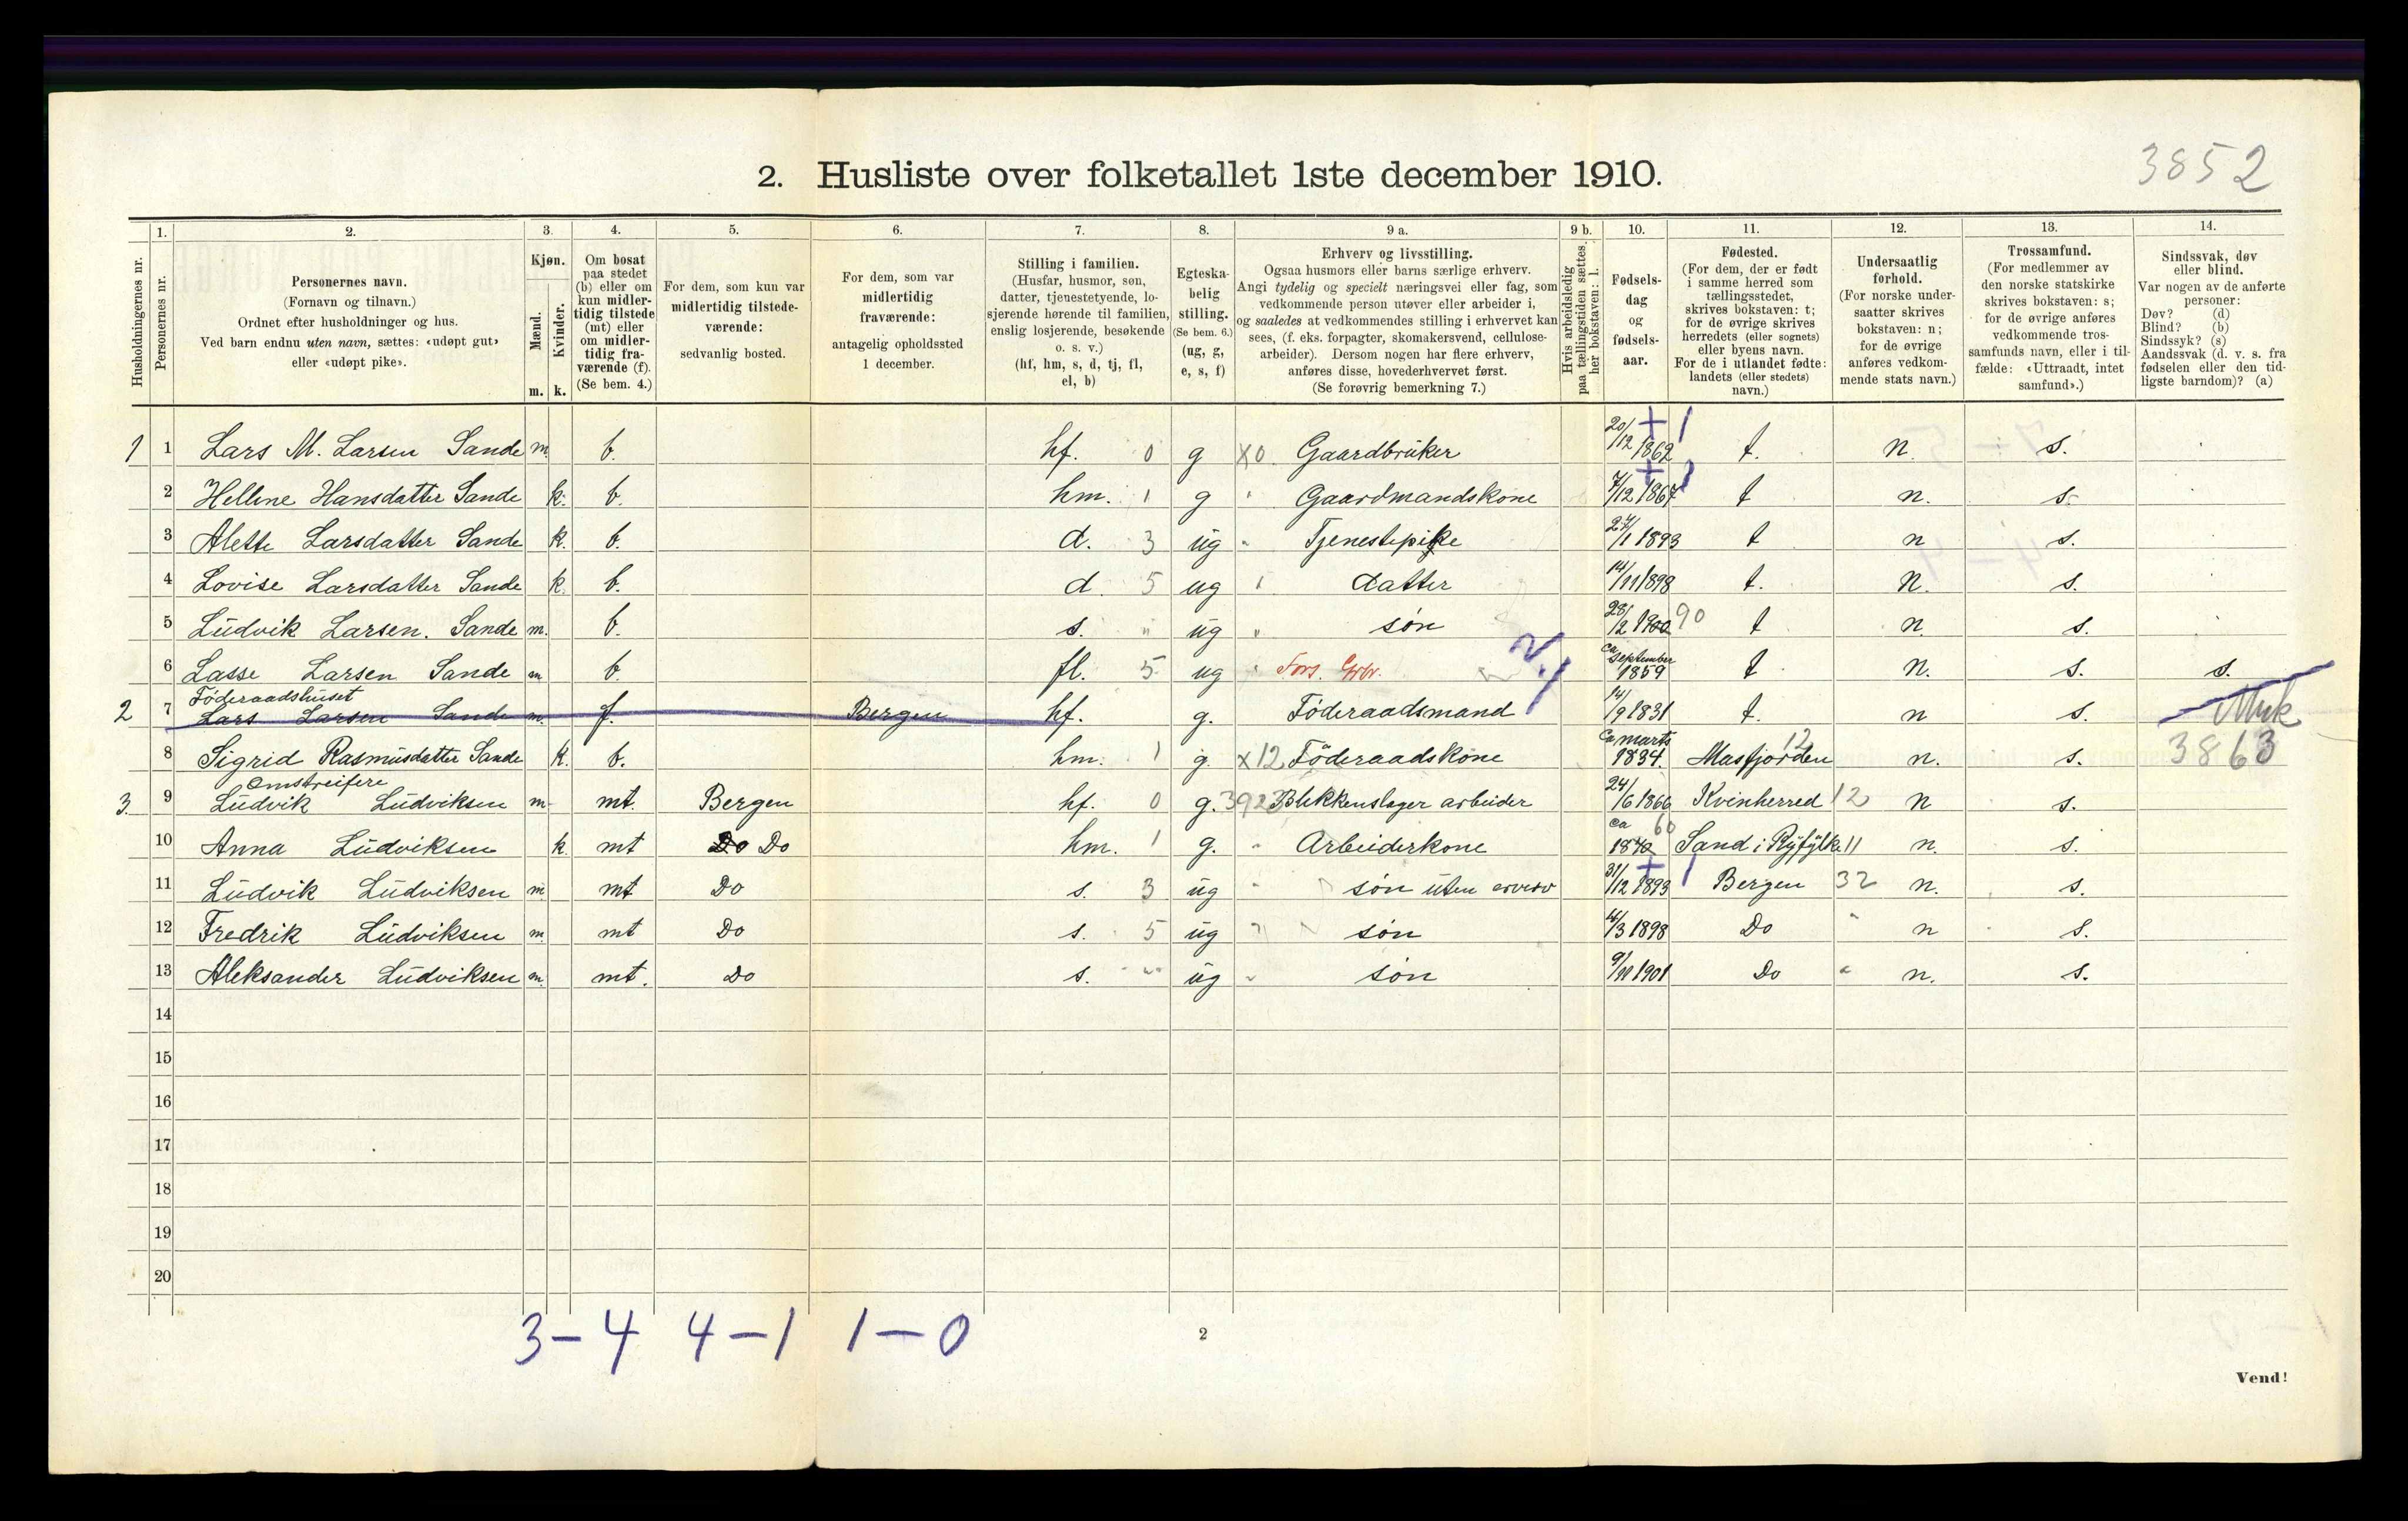 3852
2. Husliste over folketallet 1ste december 1910.
Husholdningernes nr.
1.
Personernes nr.
2.
Personernes navn.
(Fornavn og tilnavn.)
Ordnet efter husholdninger og hus.
Ved barn endnu uten navn, sættes: «udøpt gut»
eller «udøpt pike».
3.
Kjøn.
Mænd.
Kvinder.
m. k.
4.
Om bosat
paa stedet
(b) eller om
kun midler-
tidig tilstede
(mt) eller
om midler-
tidig fra-
værende (f).
(Se bem. 4.)
5.
For dem, som kun var
midlertidig tilstede-
værende:
sedvanlig bosted.
6.
For dem, som var
midlertidig
fraværende:
antagelig opholdssted
1 december.
7.
Stilling i familien.
(Husfar, husmor, søn,
datter, tjenestetyende, lo-
sjerende hørende til familien,
enslig losjerende, besøkende
o. s. v.)
(hf, hm, s, d, tj, fl,
el, b)
8.
Egteska-
belig
stilling.
(Se bem. 6.)
(ug, g,
e, s, f)
9 a.
Erhverv og livsstilling.
Ogsaa husmors eller barns særlige erhverv.
Angi tydelig og specielt næringsvei eller fag, som
vedkommende person utøver eller arbeider i,
og saaledes at vedkommendes stilling i erhvervet kan
sees, (f. eks. forpagter, skomakersvend, cellulose-
arbeider). Dersom nogen har flere erhverv,
anføres disse, hovederhvervet først.
(Se forøvrig bemerkning 7.)
9 b.
Hvis arbeidsledig
paa tællingstiden sættes
her bokstaven: l.
10.
Fødsels-
dag
og
fødsels-
aar.
11.
Fødested.
(For dem, der er født
i samme herred som
tællingsstedet,
skrives bokstaven: t;
for de øvrige skrives
herredets (eller sognets)
eller byens navn.
For de i utlandet fødte:
landets (eller stedets)
navn.)
12.
Undersaatlig
forhold.
(For norske under-
saatter skrives
bokstaven: n;
for de øvrige
anføres vedkom-
mende stats navn.)
13.
Trossamfund.
(For medlemmer av
den norske statskirke
skrives bokstaven: s;
for de øvrige anføres
vedkommende tros-
samfunds navn, eller i til-
fælde: «Uttraadt, intet
samfund».)
14.
Sindssvak, døv
eller blind.
Var nogen av de anførte
personer:
Døv? (d)
Blind? (b)
Sindssyk? (s)
Aandssvak (d. v. s. fra
fødselen eller den tid-
ligste barndom)? (a)
1 1 Lars M. Larsen Sande m. b. hf. 0 g X0 Gaardbruker 20/12 1862 + 1 t. n. s.
2 Helline Hansdatter Sande k. b. hm. 1 g " Gaardmandskone 7/12 1867 + 1 t n. s.
3 Alette Larsdatter Sande k. b. d. 3 ug " Tjenestepike 27/1 1893 t n s.
4 Lovise Larsdatter Sande k. b. d. 5 ug " datter 14/11 1898 t. n. s.
5 Ludvik Larsen. Sande m. b. s. " ug " søn 28/2 1900 90 t n. s.
6 Lasse Larsen Sande m b. fl. 5 ug " Fors. ca september 1859 t n. s. s.
Føderaadshuset
2 7 Lars Larsen Sande m. f. Bergen hf. g. Føderaadsmand 14/9 1831 t. n s.
8 Sigrid Rasmusdatter Sande k. b. hm. 1 g. X12 Føderaadskone ca marts 1834 Masfjorden 12 n. s. 3863
Omstreifere
3. 9 Ludvik Ludviksen m. mt. Bergen hf. 0 g. 3923 Blekkenslager arbeider 24/6 1866 Kvinherred 12 n s.
10 Anna Ludviksen k. mt Do Do hm. 1 g. " Arbeiderkone ca 1870 60 Sand i Ryfylke 11 n. s.
11 Ludvik Ludviksen m. mt Do s. 3 ug " søn uten erverv 31/12 1893 + 1 Bergen 32 n. s.
12 Fredrik Ludviksen m. mt Do s. 5 ug " søn 4/3 1898 Do " n s.
13 Aleksander Ludviksen m. mt. Do s. " ug " søn 9/11 1901 Do " n. s.
14
15
16
17
18
19
20
3 — 4 4 — 1 1 — 0
2
Vend!